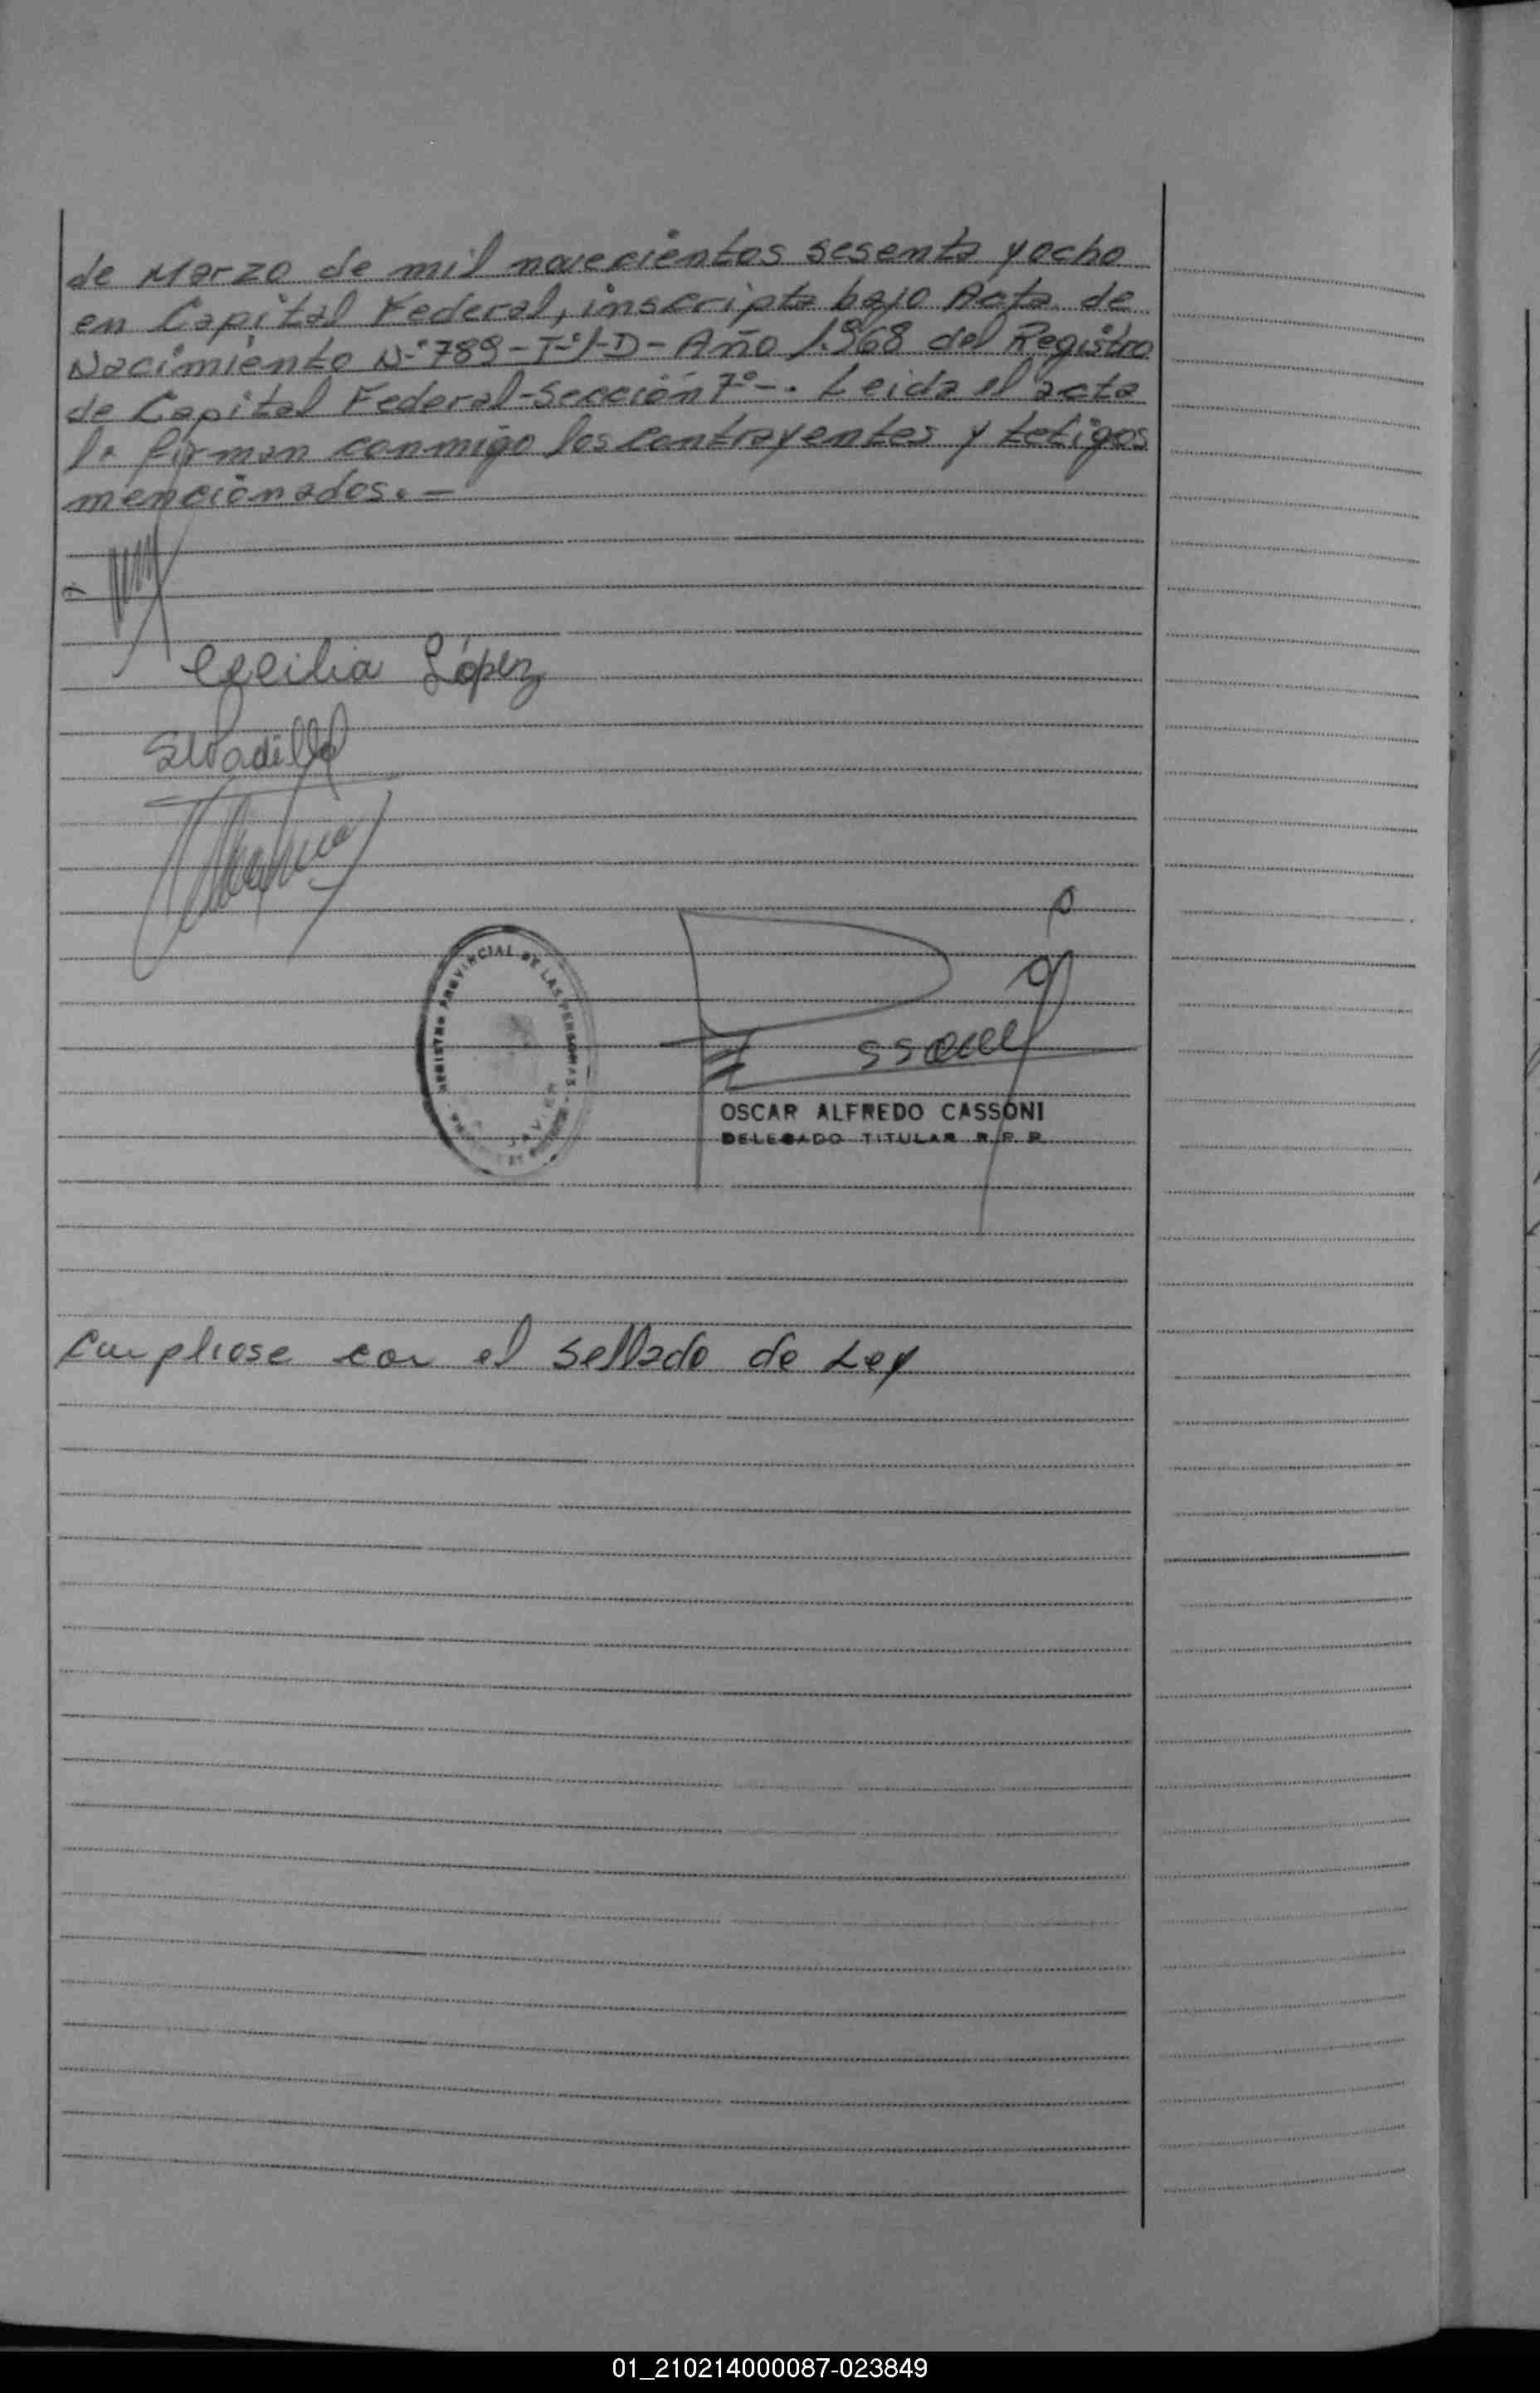 de Marzo de mil novecientos sesenta y ocho
en Capital Federal, inscripta bajo Acta de
Nacimiento N° 789-T°1-D- Año 1968 del Registro
de Capital Federal-Sección 7°-. Leida el acta
la firman conmigo los contrayentes y tetigos
mencionados. -
Cecilia López
REGISTRO PROVINCIAL DE LAS PERSONAS
OSCAR ALFREDO CASSONI
DELEGADO TITULAR R.P.P.
Cumpliose con el sellado de Ley
01_210214000087-023849